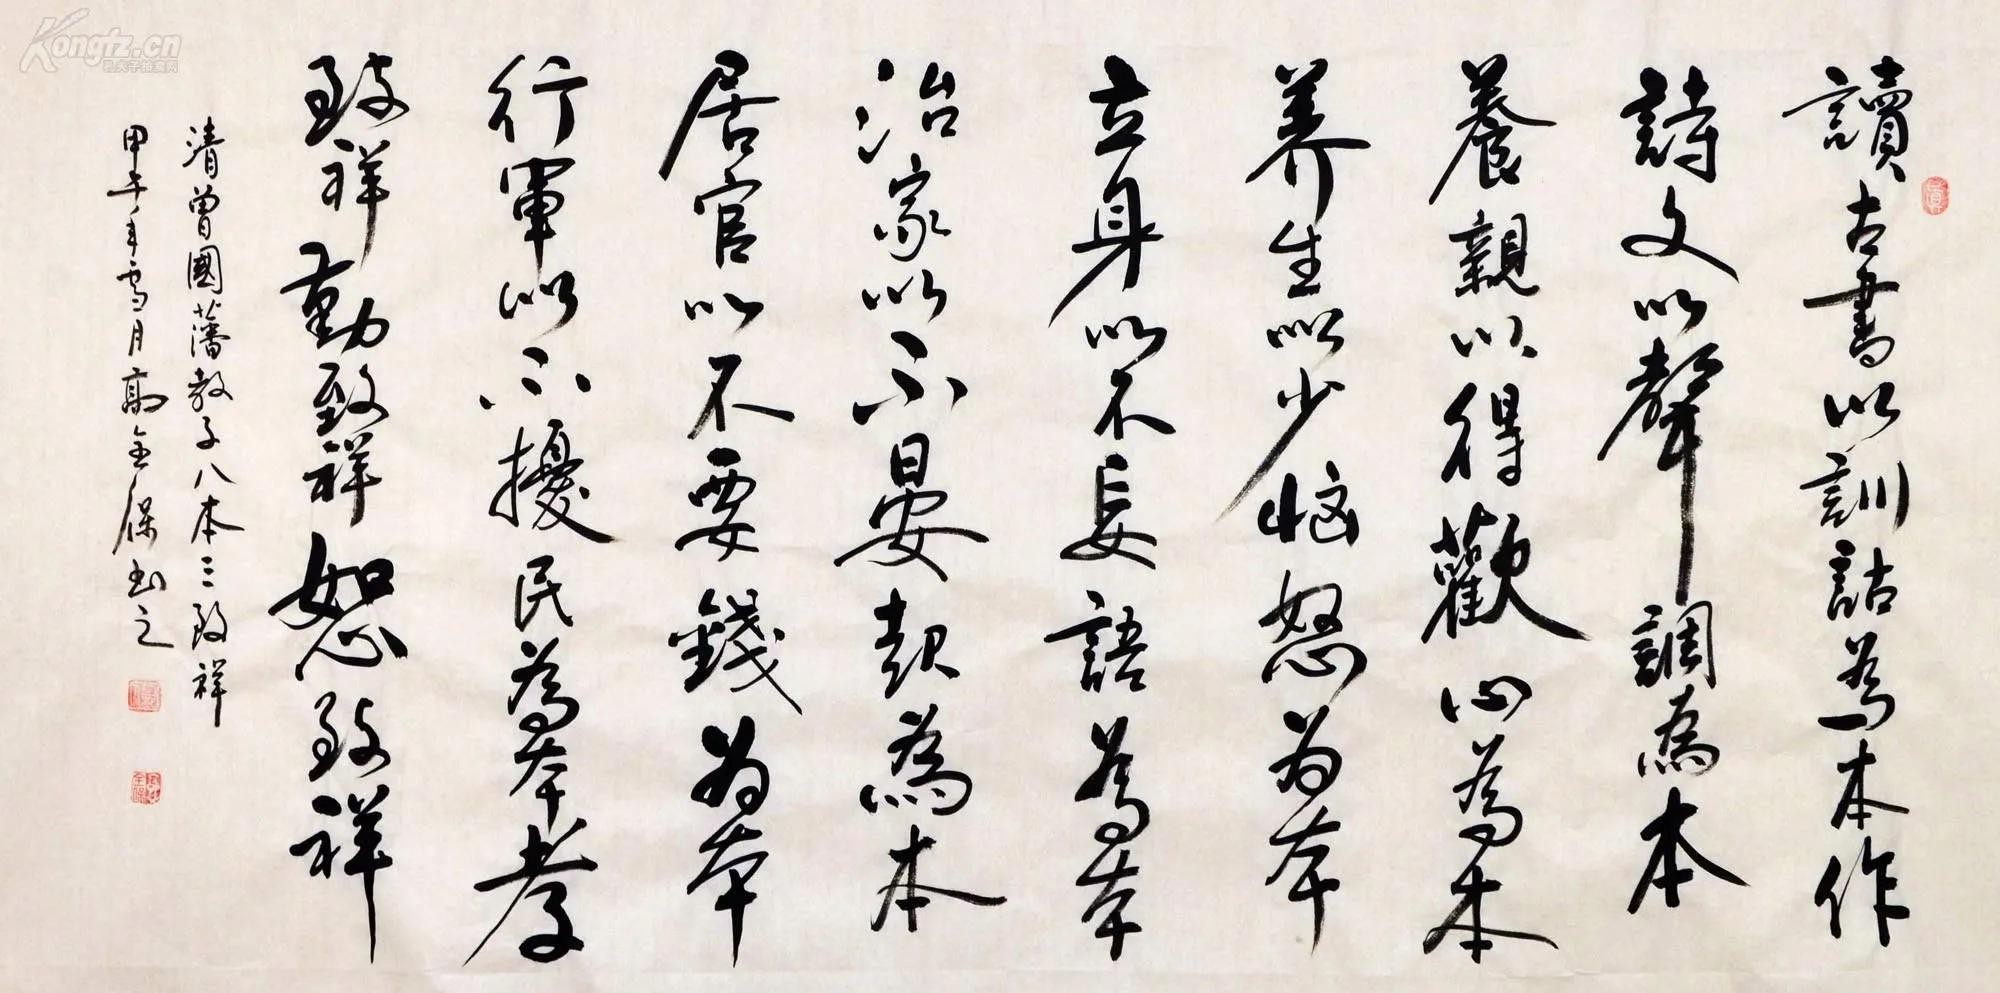 讀古書以訓詁為本作
詩文以聲調為本
養親以得歡心為本
养生以少恼怒为本
立身以不妄語為本
治家以不晏起為本
居官以不要錢为本
行軍以不擾民為本孝
致祥勤致祥恕致祥
清曾國藩教子八本三致祥
甲午年雪月高保书之
Kongfz.cn
孔夫子拍卖网